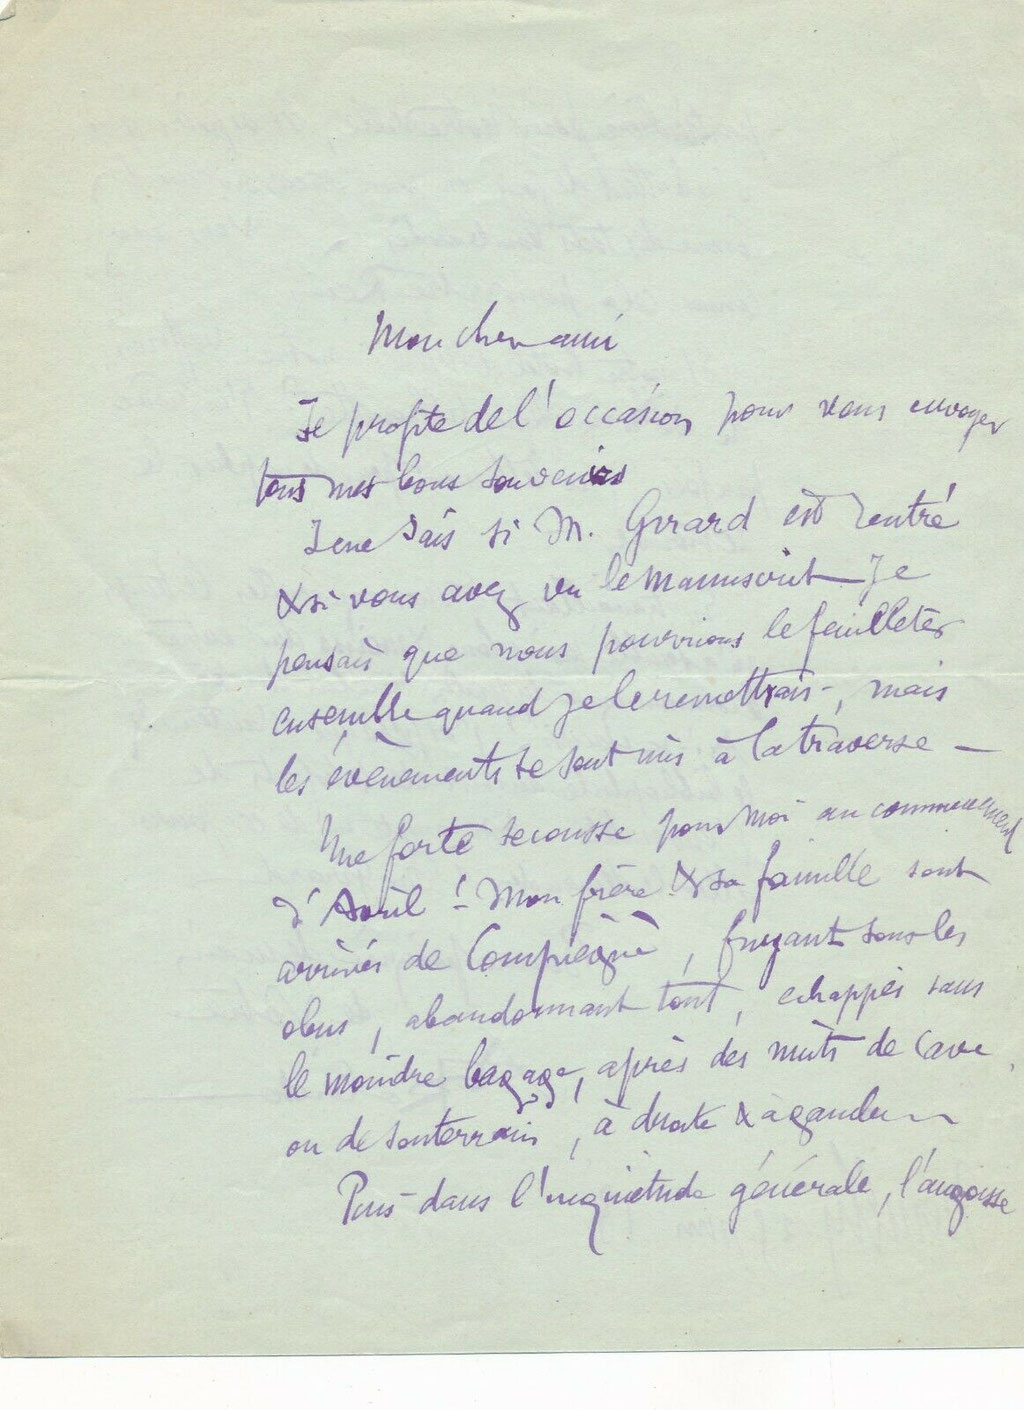 Mon cher ami
Je profite de l'occasion pour vous envoyer
tous mes bons souvenirs
Je ne sais si M. Girard est rentré
& si vous avez vu le manuscrit – Je
pensais que nous pourrions le feuilleter
ensemble quand je le remettrais –, mais
les évènements se sont mis à la traverse –
Une forte secousse pour moi au commencement
d'Avril ! – Mon frère & sa famille sont
arrivés de Compiègne, fuyant sous les
obus, abandonnant tout, échappés sans
le moindre bagage, après des nuits de cave
ou de souterrain, à droite & à gauche –
Puis – dans l'inquiétude générale, l'angoisse